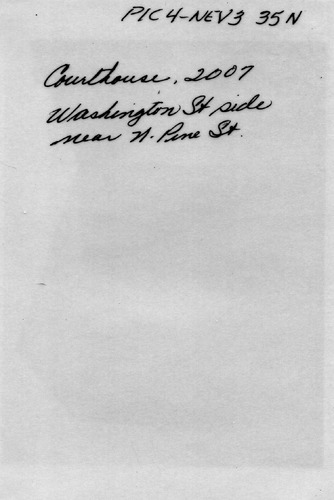 PIC 4-NEV3 35N
Courthouse, 2007
Washington St side
near N. Pine St.